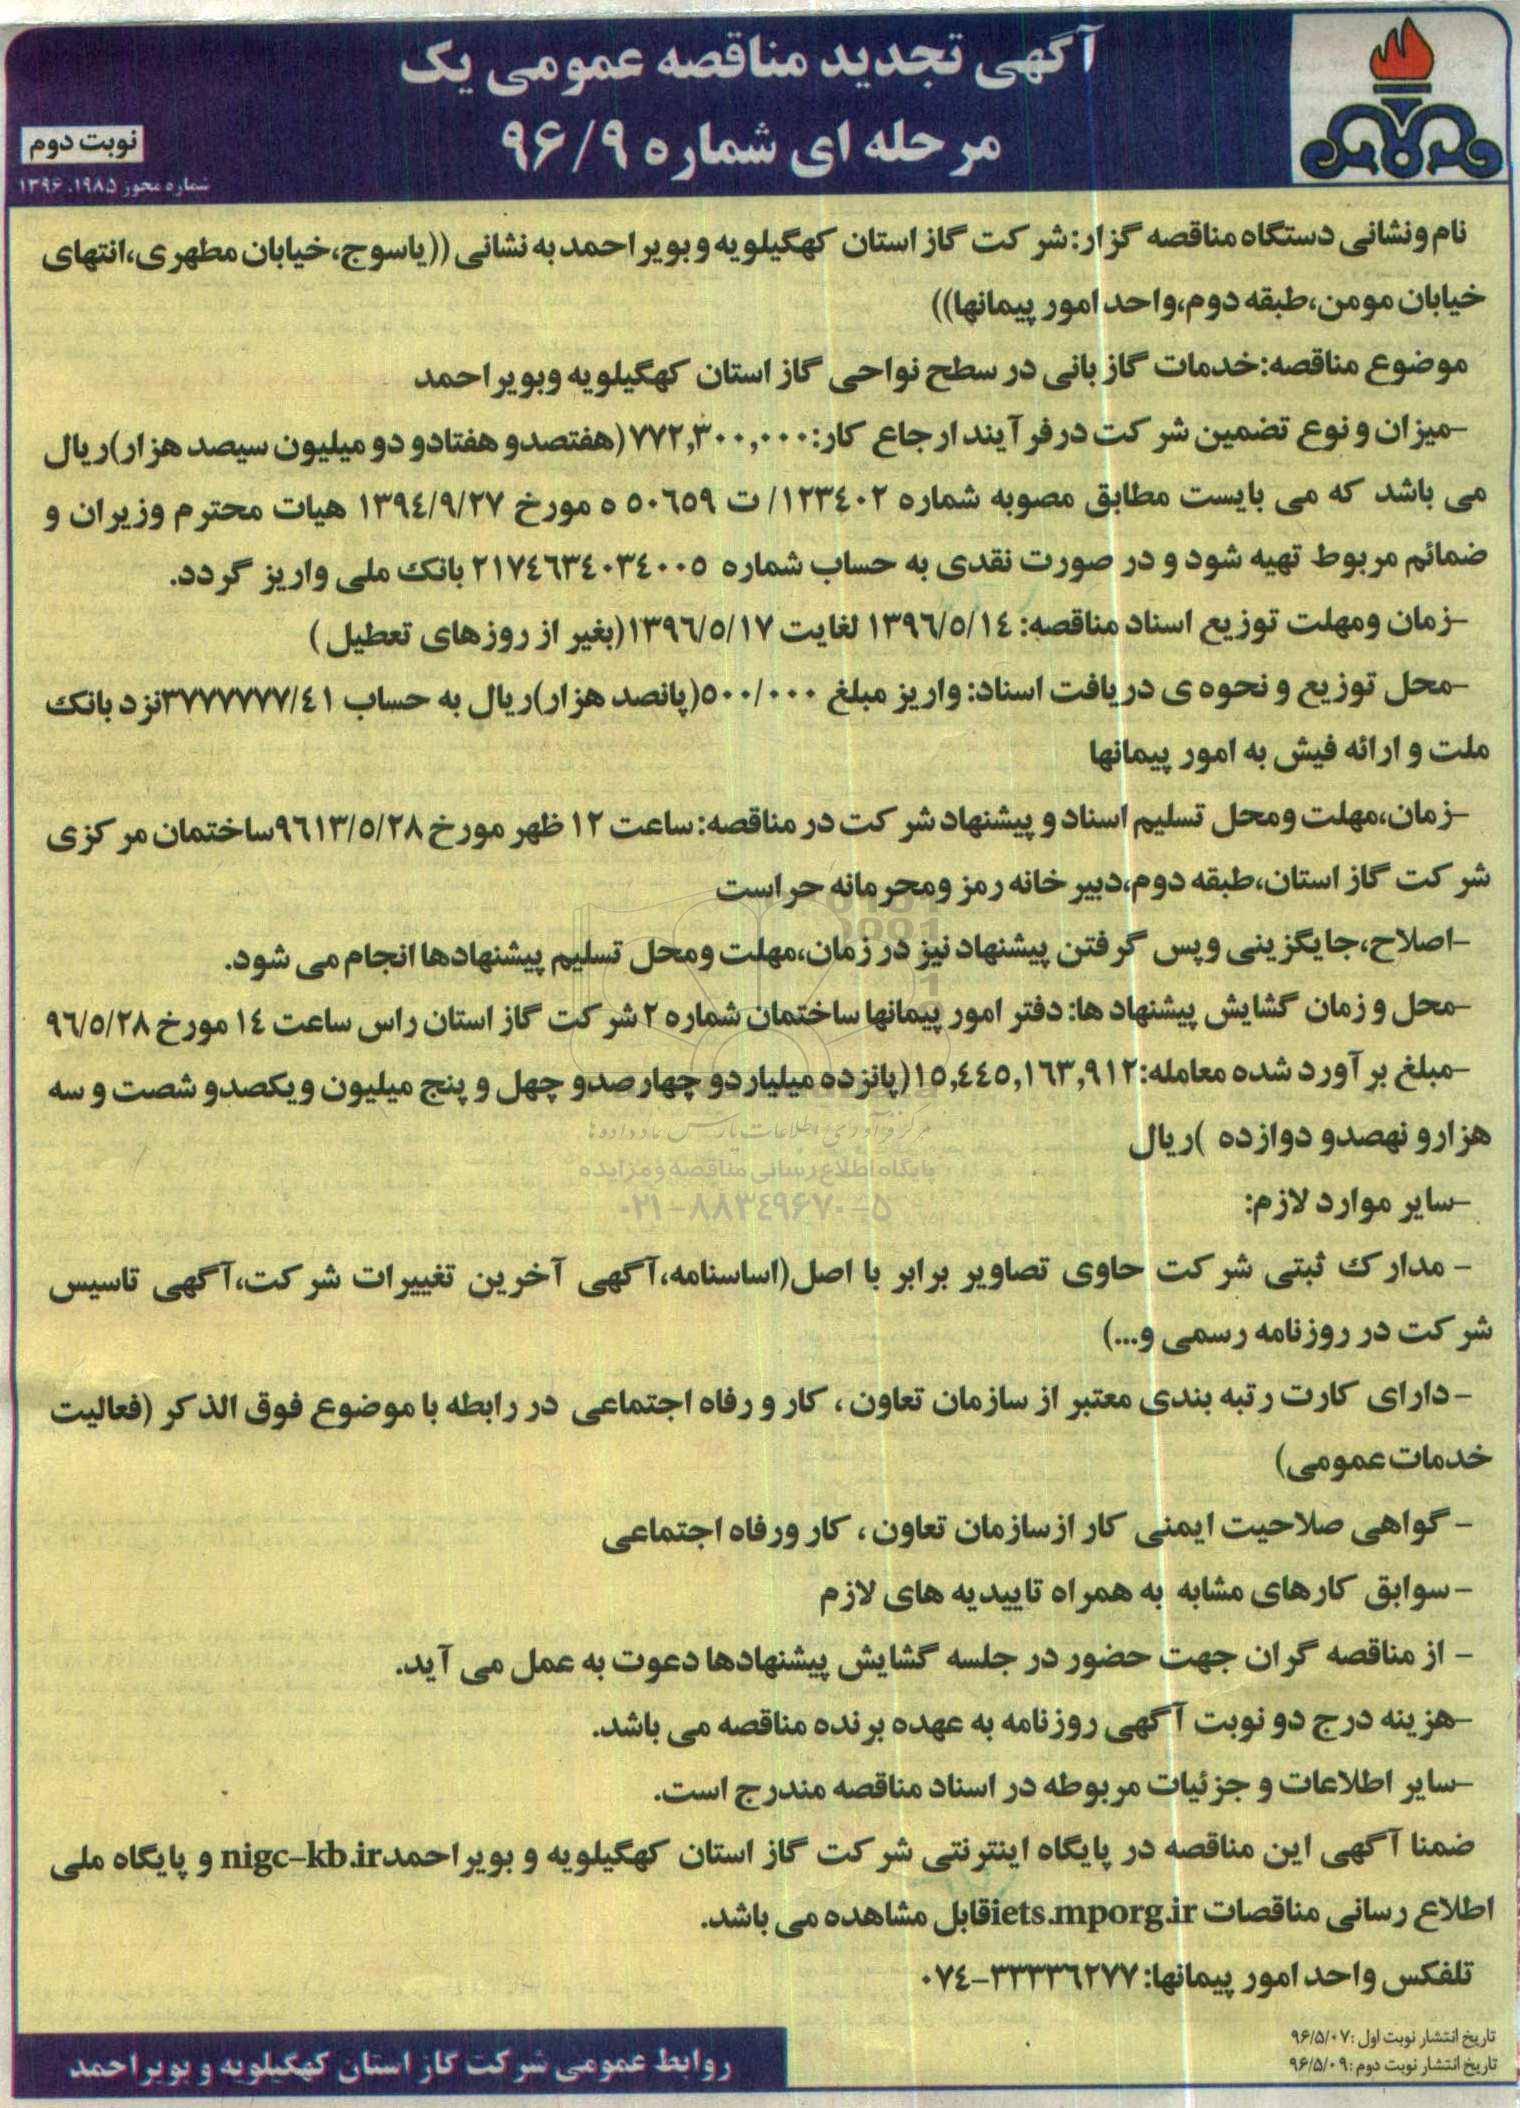 آگهی تجدید مناقصه عمومی یک
مرحله ای شماره ۹۶/۹
نوبت دوم
شماره مجوز ۱۹۸۵. ۱۳۹۶
نام ونشانی دستگاه مناقصه گزار: شرکت گاز استان کهگیلویه و بویراحمد به نشانی ((یاسوج،خیابان مطهری،انتهای
خیابان مومن،طبقه دوم،واحد امور پیمانها))
موضوع مناقصه:خدمات گازبانی در سطح نواحی گاز استان کهگیلویه وبویراحمد
-میزان و نوع تضمین شرکت درفرآیند ارجاع کار:۷۷۲,۳۰۰,۰۰۰(هفتصدو هفتادو دو میلیون سیصد هزار)ریال
می باشد که می بایست مطابق مصوبه شماره ۱۲۳٤۰۲/ ت ٥۰٦٥۹ ه مورخ ۱۳۹٤/۹/۲۷ هیات محترم وزیران و
ضمائم مربوط تهیه شود و در صورت نقدی به حساب شماره ۲۱۷٤٦۳٤۰۳٤۰۰٥ بانک ملی واریز گردد.
-زمان ومهلت توزیع اسناد مناقصه: ۱۳۹٦/٥/۱٤ لغایت ۱۳۹٦/٥/۱۷(بغیر از روزهای تعطیل )
-محل توزیع و نحوه ی دریافت اسناد: واریز مبلغ ٥۰۰/۰۰۰(پانصد هزار)ریال به حساب ۳۷۷۷۷۷۷/٤۱نزد بانک
ملت و ارائه فیش به امور پیمانها
-زمان،مهلت ومحل تسلیم اسناد و پیشنهاد شرکت در مناقصه: ساعت ۱۲ ظهر مورخ ۹٦۱۳/٥/۲۸ساختمان مرکزی
شرکت گاز استان،طبقه دوم،دبیرخانه رمز ومحرمانه حراست
-اصلاح،جایگزینی وپس گرفتن پیشنهاد نیز در زمان،مهلت ومحل تسلیم پیشنهادها انجام می شود.
-محل و زمان گشایش پیشنهاد ها: دفتر امور پیمانها ساختمان شماره ۲ شرکت گاز استان راس ساعت ۱٤ مورخ ۹٦/٥/۲۸
-مبلغ برآورد شده معامله:۱٥,٤٤٥,۱٦۳,۹۱۲(پانزده میلیاردو چهارصدو چهل و پنج میلیون ویکصدو شصت و سه
هزارو نهصدو دوازده )ریال
مرکز فرآوری اطلاعات پارس نماد داده ها
پایگاه اطلاع رسانی مناقصه و مزایده
۰۲۱-۸۸۳۴۹۶۷۰-۵
-سایر موارد لازم:
- مدارک ثبتی شرکت حاوی تصاویر برابر با اصل(اساسنامه،آگهی آخرین تغییرات شرکت،آگهی تاسیس
شرکت در روزنامه رسمی و...)
- دارای کارت رتبه بندی معتبر از سازمان تعاون ، کار و رفاه اجتماعی در رابطه با موضوع فوق الذکر (فعالیت
خدمات عمومی)
- گواهی صلاحیت ایمنی کار ازسازمان تعاون ، کار ورفاه اجتماعی
- سوابق کارهای مشابه به همراه تاییدیه های لازم
- از مناقصه گران جهت حضور در جلسه گشایش پیشنهادها دعوت به عمل می آید.
-هزینه درج دو نوبت آگهی روزنامه به عهده برنده مناقصه می باشد.
-سایر اطلاعات و جزئیات مربوطه در اسناد مناقصه مندرج است.
ضمنا آگهی این مناقصه در پایگاه اینترنتی شرکت گاز استان کهگیلویه و بویراحمدnigc-kb.ir و پایگاه ملی
اطلاع رسانی مناقصات iets.mporg.irقابل مشاهده می باشد.
تلفکس واحد امور پیمانها: ۰۷٤-۳۳۳۳٦۲۷۷
تاریخ انتشار نوبت اول :۹۶/۵/۰۷
تاریخ انتشار نوبت دوم :۹۶/۵/۰۹
روابط عمومی شرکت گاز استان کهگیلویه و بویراحمد